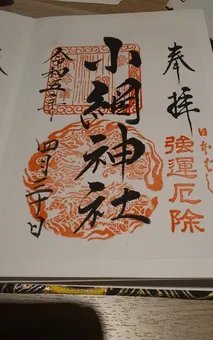 奉拝
強運厄除
小網神社
令和五年 四月二十日